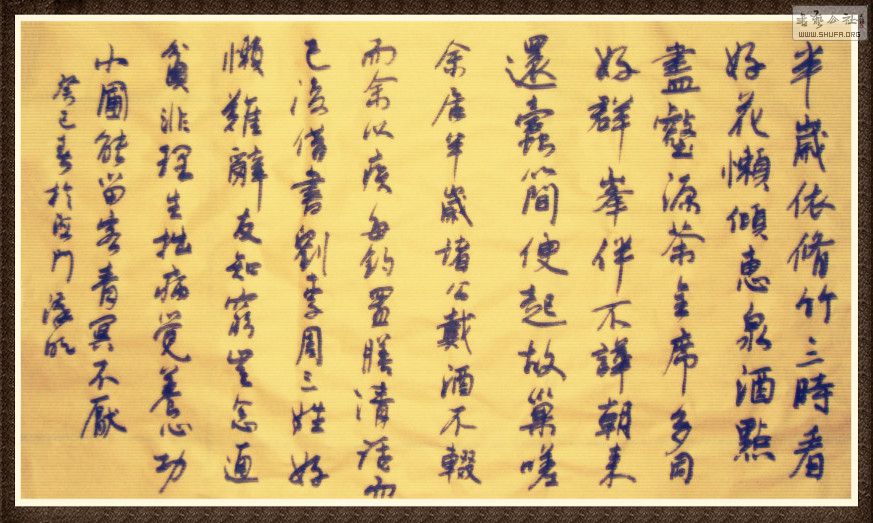 半歲依脩竹三時看
好花懶傾惠泉酒點
盡壑源茶主席多同
好群峯伴不譁朝來
還蠹簡便起故巢嗟
余居半歲諸公戴酒不輟
而余以疾每約置膳清話而
已復借書劉李周三姓好
懶難辭友知窮豈念通
貧非理生拙病覺養心功
小圃能留客青冥不厭
癸巳春於門
书艺公社
WWW.SHUFA.ORG